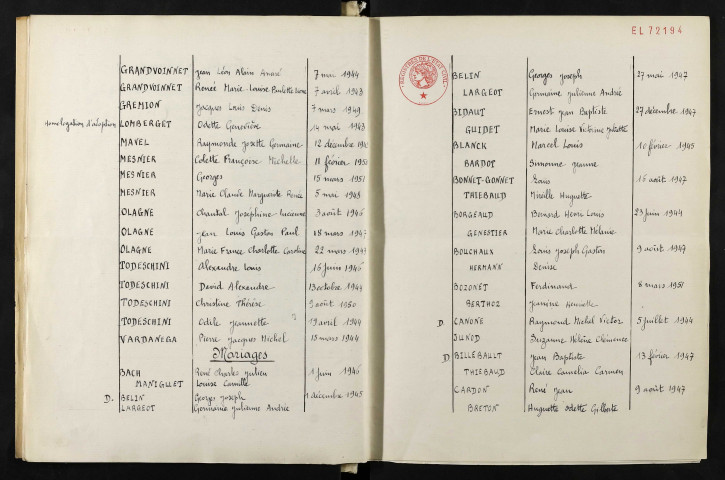 GRANDVOINNET Jean Léon Alain André 7 mai 1944
GRANDVOINNET Renée Marie-Louise Paulette 7 avril 1943
GREMION Jacques Louis Denis 7 mars 1949
homologation d'adoption LOMBERGET Odette Geneviève 14 mai 1943
MAVEL Raymonde Josette Germaine 12 décembre
MESNIER Colette Françoise Michelle 11 février
MESNIER Georges 15 mars 1951
MESNIER Marie Claude Marguerite Renée 5 mai 1948
OLAGNE Chantal Joséphine Lucienne 3 août 1946
OLAGNE Jean Louis Gaston Paul 18 mars 1947
OLAGNE Marie France Charlotte Caroline 22 mars
TODESCHINI Alexandre Louis 16 juin 1946
TODESCHINI David Alexandre 13 octobre 1944
TODESCHINI Christine Thérèse 3 août 1950
TODESCHINI Odile Jeannette 19 avril 1944
VARDANEGA Pierre Jacques Michel 15 mars 1944
Mariages
BACH René Charles Julien 1 juin 1946
MANIGUET Louise Camille
D. BELIN Georges Joseph 1 décembre 1945
LARGEOT Germaine Julienne Andrée
EL72194
REGISTRES DE L'ETAT CIVIL
BELIN Georges Joseph 27 mai 1947
LARGEOT Germaine Julienne André
BIDAUT Ernest Jean Baptiste 27 décembre 1947
GUIDET Marie Louise Victorine Juliette
BLANCK Marcel Louis 10 février 1945
BARDOT Simonne Jeanne
BONNET-GONNET Louis 16 août 1947
THIEBAUD Mireille Huguette
BORGEAUD Bernard Henri Louis 23 juin 1944
GENESTIER Marie Charlotte Mélanie
BOUCHAUX Louis Joseph Gaston 9 août 1947
HERMANN Denise
BOZONET Ferdinand 8 mars 1951
BERTHOZ Janine Henriette
D. CANONE Raymond Michel Victor 5 juillet 1944
JUNOD Suzanne Hélène Clémence
D BILLEBAULT Jean Baptiste 13 février 1947
THIEBAUD Claire Camelia Carmen
CARDON René Jean 9 août 1947
BRETON Huguette Odette Gilberte